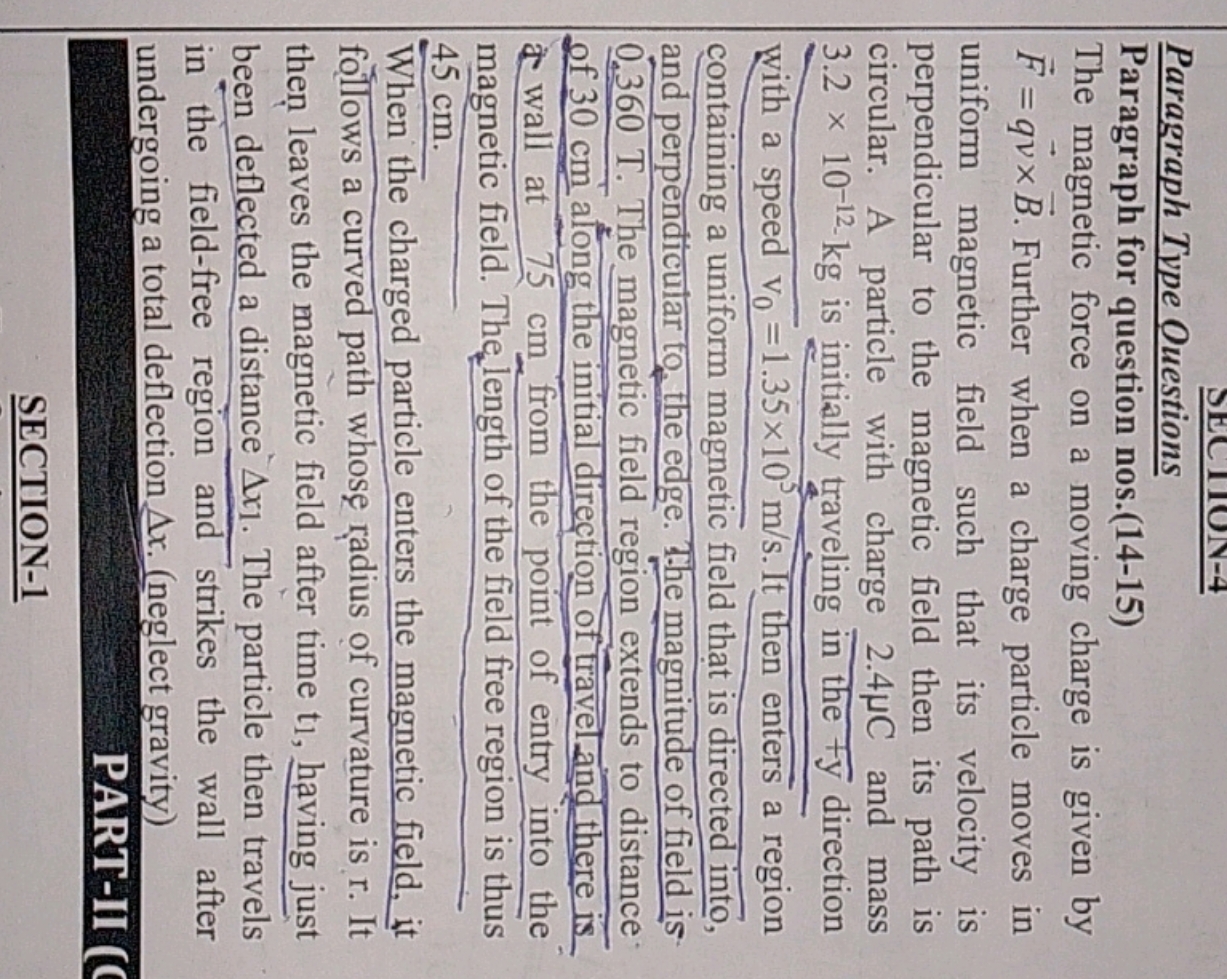 SECTION-4
Paragraph Type Questions
Paragraph for question nos.(14-15)
The magnetic force on a moving charge is given by
F⃗ = qv⃗ × B⃗. Further when a charge particle moves in
uniform magnetic field such that its velocity is
perpendicular to the magnetic field then its path is
circular. A particle with charge 2.4μC and mass
3.2 × 10⁻¹² kg is initially traveling in the +y direction
with a speed v₀ = 1.35×10⁵ m/s. It then enters a region
containing a uniform magnetic field that is directed into,
and perpendicular to the edge. The magnitude of field is
0.360 T. The magnetic field region extends to distance
of 30 cm along the initial direction of travel and there is
a wall at 75 cm from the point of entry into the
magnetic field. The length of the field free region is thus
45 cm.
When the charged particle enters the magnetic field, it
follows a curved path whose radius of curvature is r. It
then leaves the magnetic field after time t1, having just
been deflected a distance Δx1. The particle then travels
in the field-free region and strikes the wall after
undergoing a total deflection Δx. (neglect gravity)
PART-II (
SECTION-1